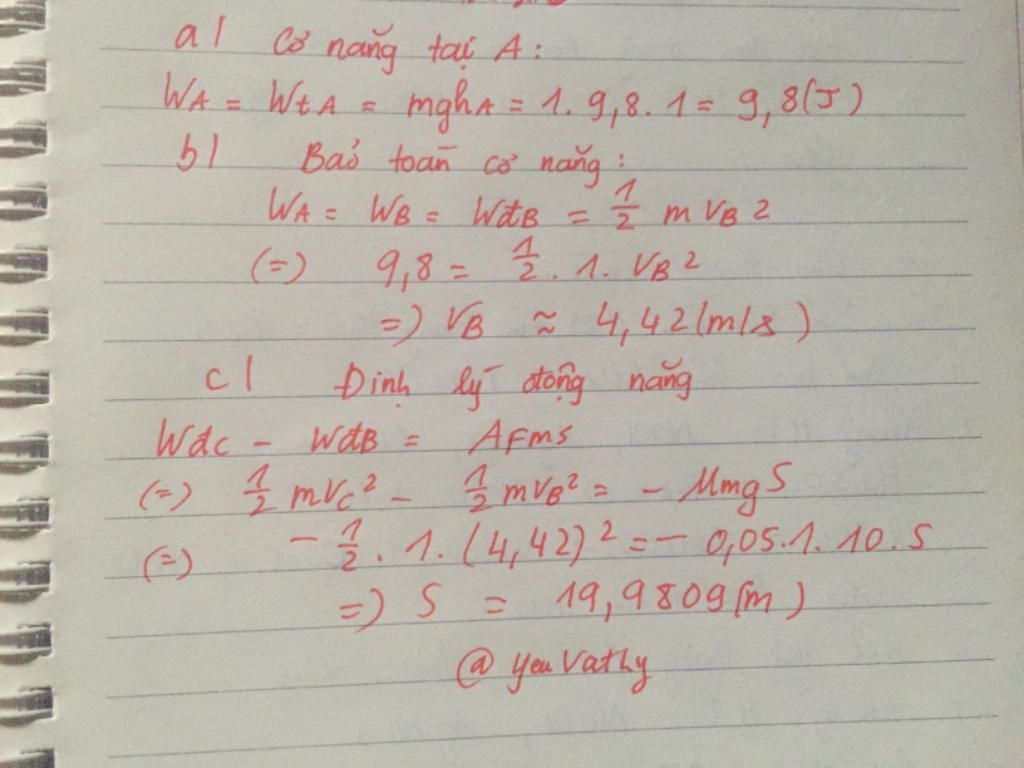 a/ Cơ năng tại A:
WA = WtA = mghA = 1. 9,8. 1 = 9,8(J)
b/ Bảo toàn cơ năng:
WA = WB = WđB = 1/2 m vB²
(=) 9,8 = 1/2 . 1. vB²
=) vB ≈ 4,42(m/s)
c/ Định lý động năng
WđC - WđB = AFms
(=) 1/2 mvC² - 1/2 mvB² = - µmgS
(=) - 1/2 . 1. (4,42)² = - 0,05.1.10.S
=) S = 19,9809(m)
@yeuVatly